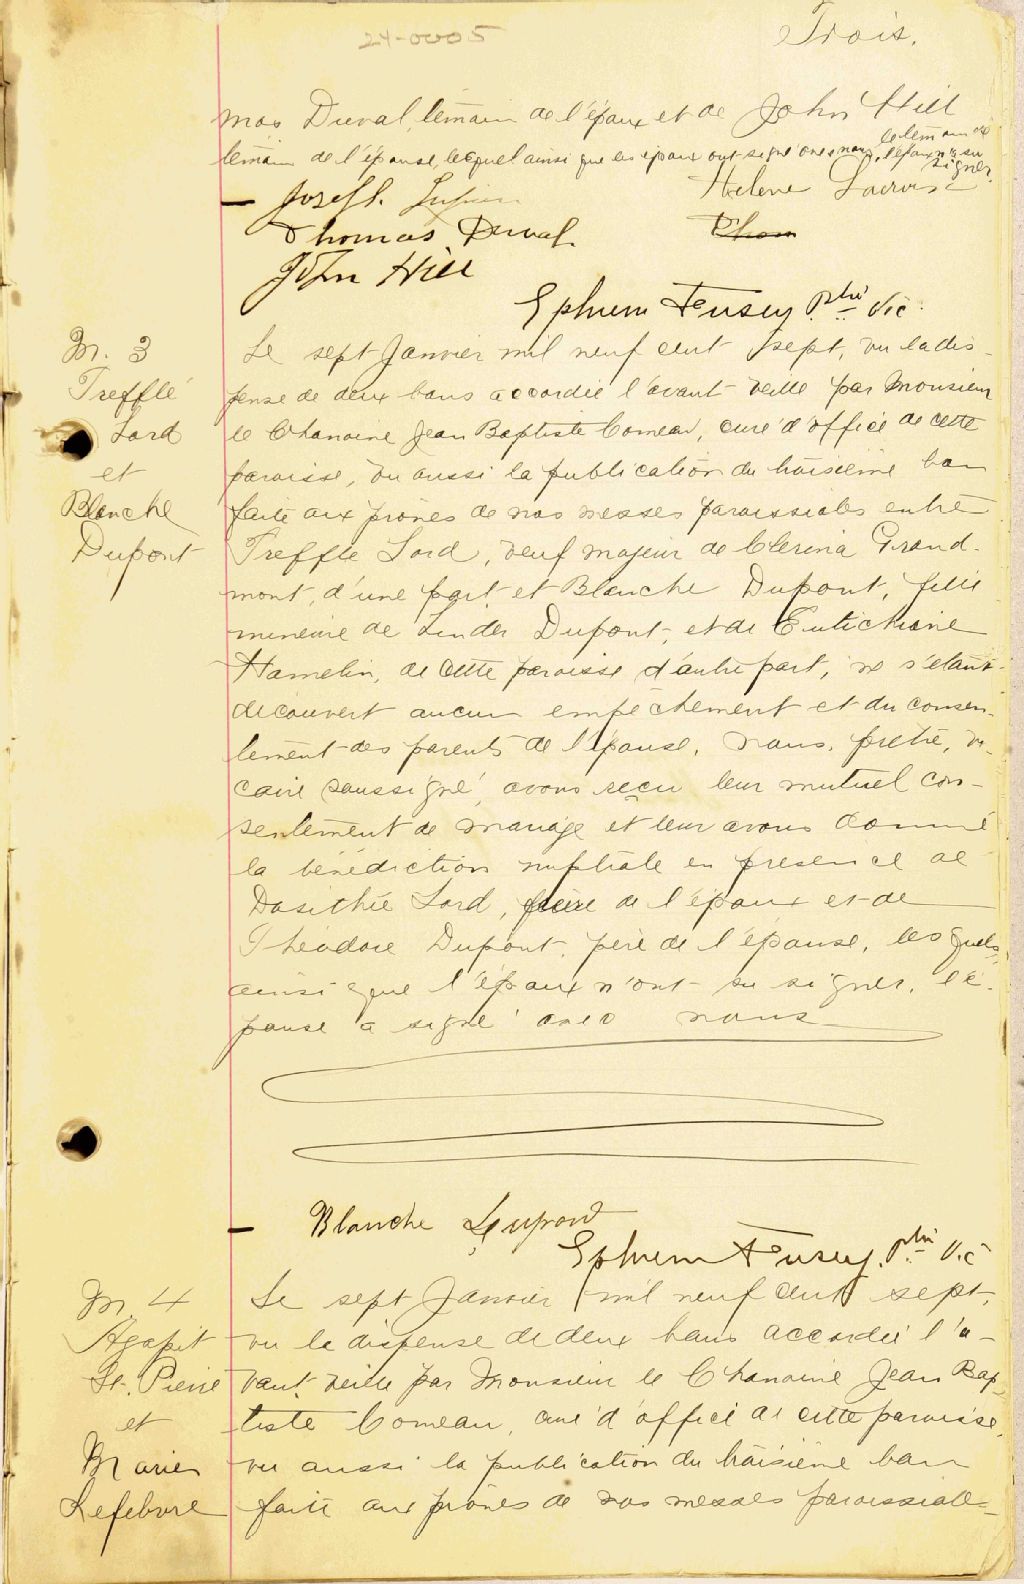 24-0005
Trois.
mas Duval, témoin de l'époux et de John Hill
témoin de l'épouse, lesquels ainsi que les époux ont signé avec nous,
le témoin de
l'époux n'a su
signer.
Joseph
Helene Lacroix
Thomas Duval
Thom
John Hill
Ephrem Fusey Ptre Vic.
M. 3
Trefflé
Lord
et
Blanche
Dupont
Le sept Janvier mil neuf cent sept, vu la dis-
pense de deux bans accordée l'avant-veille par Monsieur
le Chanoine Jean Baptiste Comeau, curé d'office de cette
paroisse, vu aussi la publication du troisième ban
faite aux prônes de nos messes paroissiales entre
Trefflé Lord, veuf majeur de Clerina Grand-
mont, d'une part et Blanche Dupont, fille
mineure de Dupont, et de Eutichine
Hamelin, de cette paroisse d'autre part, ne s'étant
découvert aucun empêchement et du consen-
tement des parents de l'épouse, nous, prêtre, vi-
caire soussigné, avons reçu leur mutuel con-
sentement de mariage et leur avons donné
la bénédiction nuptiale en présence de
Dosithée Lord, frère de l'époux et de
Théodore Dupont, père de l'épouse, lesquels
ainsi que l'époux n'ont su signer, l'é-
pouse a signé avec nous
Blanche Dupont
Ephrem Fusey. Ptre Vic
M. 4
Agapit
St. Pierre
et
Marie
Lefebvre
Le sept Janvier mil neuf cent sept,
vu la dispense de deux bans accordée l'a-
vant veille par Monsieur le Chanoine Jean Bap-
tiste Comeau, curé d'office de cette paroisse,
vu aussi la publication du troisième ban
faite aux prônes de nos messes paroissiale=